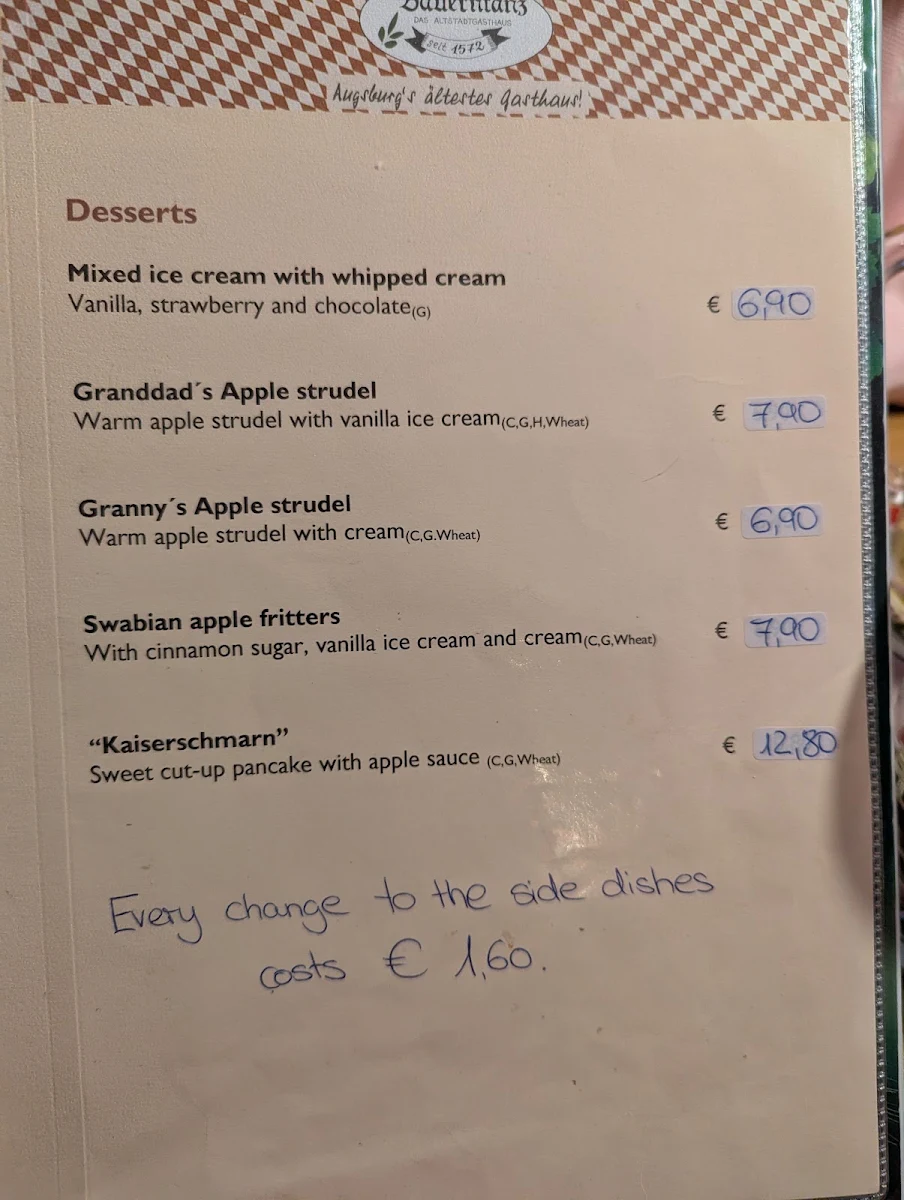 Bauerntanz
DAS ALTSTADTGASTHAUS
seit 1572
Augsburg's ältestes Gasthaus!
Desserts
Mixed ice cream with whipped cream
Vanilla, strawberry and chocolate(G) € 6,90
Granddad´s Apple strudel
Warm apple strudel with vanilla ice cream(C,G,H,Wheat) € 7,90
Granny´s Apple strudel
Warm apple strudel with cream(C,G.Wheat) € 6,90
Swabian apple fritters
With cinnamon sugar, vanilla ice cream and cream(C,G,Wheat) € 7,90
“Kaiserschmarn”
Sweet cut-up pancake with apple sauce (C,G,Wheat) € 12,80
Every change to the side dishes
costs € 1,60.